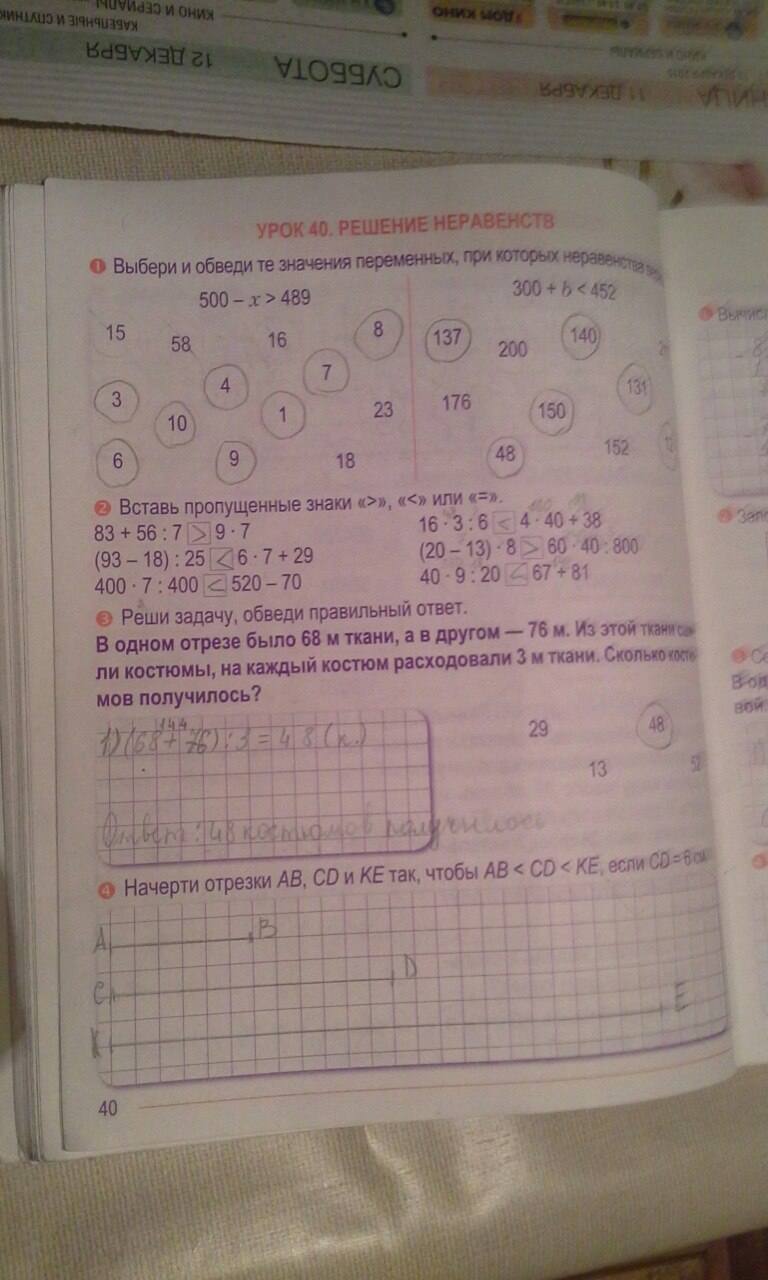 КИНО И СЕРИАЛЫ
КАБЕЛЬНЫЕ И СПУТНИК
ДОМ КИНО
12 ДЕКАБРЯ
СУББОТА
11 ДЕКАБРЯ
НИЦА
УРОК 40. РЕШЕНИЕ НЕРАВЕНСТВ
1 Выбери и обведи те значения переменных, при которых неравенства
500 – x > 489
300 + b < 452
15 58 16 8
3 4 7
10 1 23
6 9 18
137 200 140
176 150 131
48 152
2 Вставь пропущенные знаки «>», «<» или «=».
83 + 56 : 7 > 9 · 7
(93 – 18) : 25 < 6 · 7 + 29
400 · 7 : 400 < 520 – 70
16 · 3 : 6 < 4 · 40 + 38
(20 – 13) · 8 > 60 · 40 : 800
40 · 9 : 20 < 67 + 81
3 Реши задачу, обведи правильный ответ.
В одном отрезе было 68 м ткани, а в другом — 76 м. Из этой ткани
ли костюмы, на каждый костюм расходовали 3 м ткани. Сколько костю
мов получилось?
144
1) (68 + 76) : 3 = 48 (к.)
Ответ: 48 костюмов получилось
29 48
13 52
4 Начерти отрезки AB, CD и KE так, чтобы AB < CD < KE, если CD = 6 см
A B
C D
K E
40
Вычис
Запо
В од
вой.